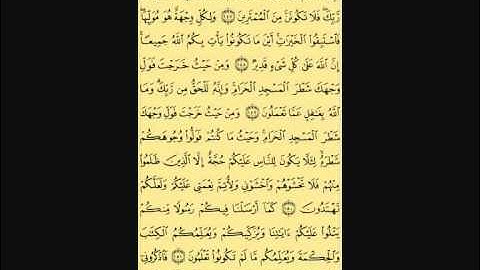 رَّبِّكَ فَلَا تَكُونَنَّ مِنَ الْمُمْتَرِينَ ﴿١٤٧﴾ وَلِكُلٍّ وِجْهَةٌ هُوَ مُوَلِّيهَا
فَاسْتَبِقُوا الْخَيْرَاتِ أَيْنَ مَا تَكُونُوا يَأْتِ بِكُمُ اللَّهُ جَمِيعًا
إِنَّ اللَّهَ عَلَىٰ كُلِّ شَيْءٍ قَدِيرٌ ﴿١٤٨﴾ وَمِنْ حَيْثُ خَرَجْتَ فَوَلِّ
وَجْهَكَ شَطْرَ الْمَسْجِدِ الْحَرَامِ وَإِنَّهُ لَلْحَقُّ مِن رَّبِّكَ وَمَا
اللَّهُ بِغَافِلٍ عَمَّا تَعْمَلُونَ ﴿١٤٩﴾ وَمِنْ حَيْثُ خَرَجْتَ فَوَلِّ وَجْهَكَ
شَطْرَ الْمَسْجِدِ الْحَرَامِ وَحَيْثُ مَا كُنتُمْ فَوَلُّوا وُجُوهَكُمْ
شَطْرَهُ لِئَلَّا يَكُونَ لِلنَّاسِ عَلَيْكُمْ حُجَّةٌ إِلَّا الَّذِينَ ظَلَمُوا
مِنْهُمْ فَلَا تَخْشَوْهُمْ وَاخْشَوْنِي وَلِأُتِمَّ نِعْمَتِي عَلَيْكُمْ وَلَعَلَّكُمْ
تَهْتَدُونَ ﴿١٥٠﴾ كَمَا أَرْسَلْنَا فِيكُمْ رَسُولًا مِّنكُمْ
يَتْلُوا عَلَيْكُمْ ءَايَاتِنَا وَيُزَكِّيكُمْ وَيُعَلِّمُكُمُ الْكِتَابَ
وَالْحِكْمَةَ وَيُعَلِّمُكُم مَّا لَمْ تَكُونُوا تَعْلَمُونَ ﴿١٥١﴾ فَاذْكُرُونِي